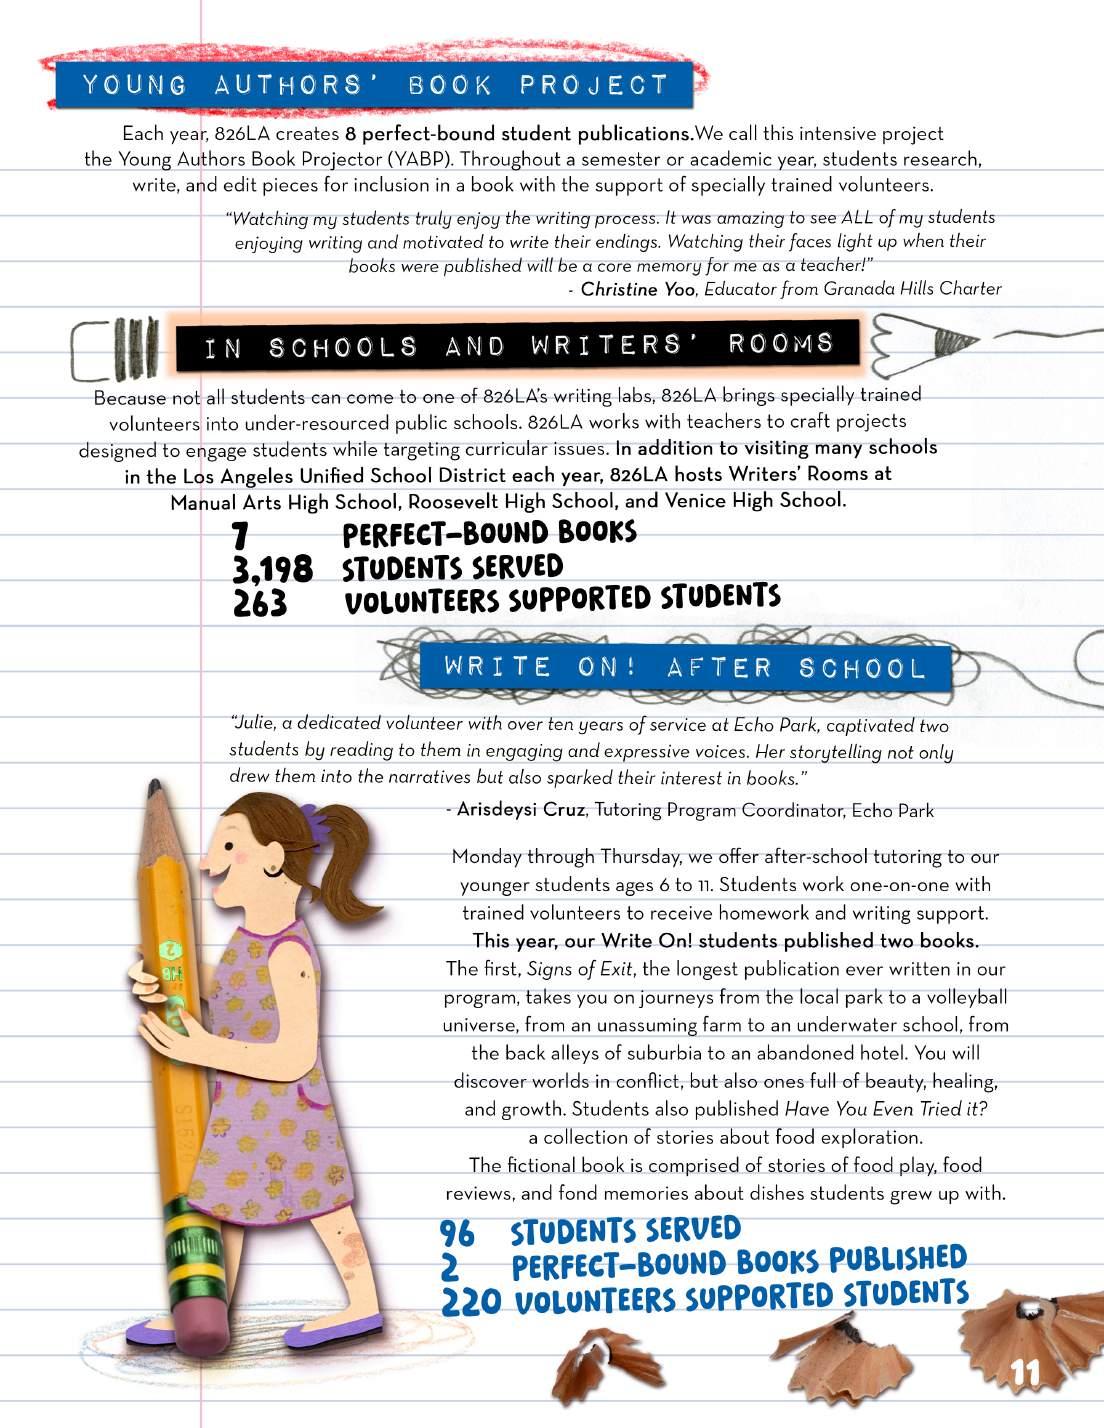 YOUNG AUTHORS' BOOK PROJECT
Each year, 826LA creates 8 perfect-bound student publications.We call this intensive project
the Young Authors Book Projector (YABP). Throughout a semester or academic year, students research,
write, and edit pieces for inclusion in a book with the support of specially trained volunteers.
“Watching my students truly enjoy the writing process. It was amazing to see ALL of my students
enjoying writing and motivated to write their endings. Watching their faces light up when their
books were published will be a core memory for me as a teacher!”
- Christine Yoo, Educator from Granada Hills Charter
IN SCHOOLS AND WRITERS' ROOMS
Because not all students can come to one of 826LA’s writing labs, 826LA brings specially trained
volunteers into under-resourced public schools. 826LA works with teachers to craft projects
designed to engage students while targeting curricular issues. In addition to visiting many schools
in the Los Angeles Unified School District each year, 826LA hosts Writers’ Rooms at
Manual Arts High School, Roosevelt High School, and Venice High School.
7 PERFECT-BOUND BOOKS
3,198 STUDENTS SERVED
263 VOLUNTEERS SUPPORTED STUDENTS
WRITE ON! AFTER SCHOOL
“Julie, a dedicated volunteer with over ten years of service at Echo Park, captivated two
students by reading to them in engaging and expressive voices. Her storytelling not only
drew them into the narratives but also sparked their interest in books.”
- Arisdeysi Cruz, Tutoring Program Coordinator, Echo Park
Monday through Thursday, we offer after-school tutoring to our
younger students ages 6 to 11. Students work one-on-one with
trained volunteers to receive homework and writing support.
This year, our Write On! students published two books.
The first, Signs of Exit, the longest publication ever written in our
program, takes you on journeys from the local park to a volleyball
universe, from an unassuming farm to an underwater school, from
the back alleys of suburbia to an abandoned hotel. You will
discover worlds in conflict, but also ones full of beauty, healing,
and growth. Students also published Have You Even Tried it?
a collection of stories about food exploration.
The fictional book is comprised of stories of food play, food
reviews, and fond memories about dishes students grew up with.
96 STUDENTS SERVED
2 PERFECT-BOUND BOOKS PUBLISHED
220 VOLUNTEERS SUPPORTED STUDENTS
2
HB
11